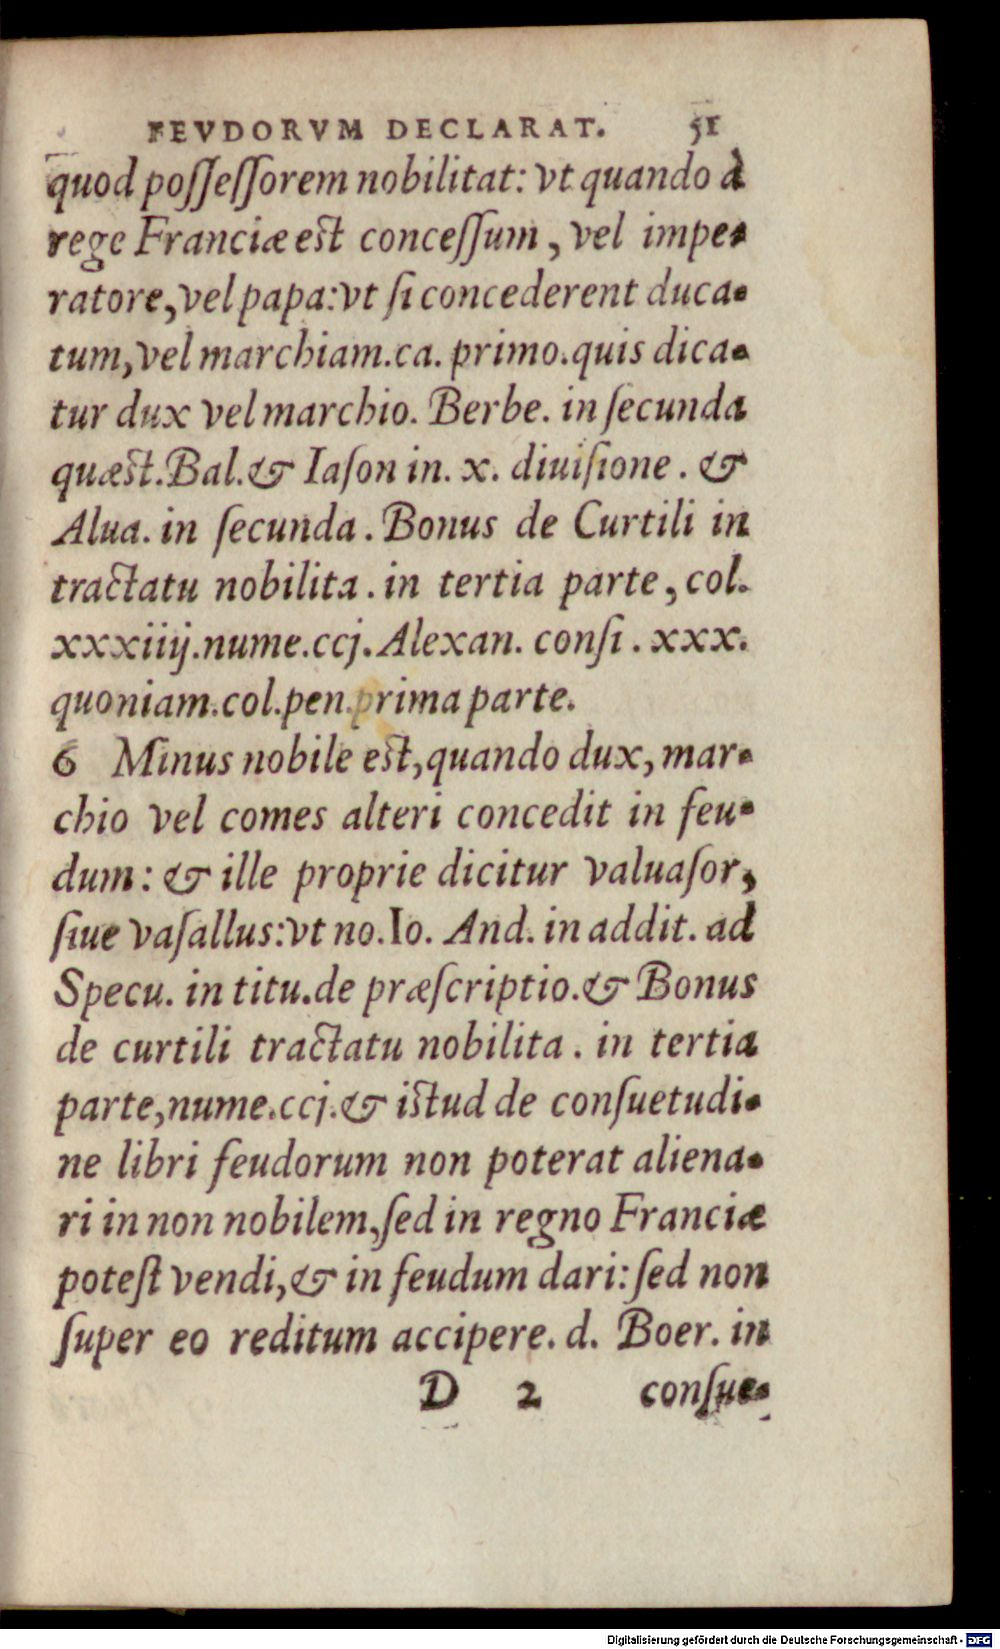 FEVDORVM DECLARAT. 51
quod poſſeſſorem nobilitat: vt quando à
rege Franciæ est conceſſum, vel impe-
ratore, vel papa: vt ſi concederent duca-
tum, vel marchiam. ca. primo. quis dica-
tur dux vel marchio. Berbe. in ſecunda
quæst. Bal. & Iaſon in. x. diuiſione. &
Alua. in ſecunda. Bonus de Curtili in
tractatu nobilita. in tertia parte, col.
xxxiiij. nume. ccj. Alexan. conſi. xxx.
quoniam. col. pen. prima parte.
6 Minus nobile est, quando dux, mar-
chio vel comes alteri concedit in feu-
dum: & ille proprie dicitur valuaſor,
ſiue vaſallus: vt no. Io. And. in addit. ad
Specu. in titu. de præſcriptio. & Bonus
de curtili tractatu nobilita. in tertia
parte, nume. ccj. & istud de conſuetudi-
ne libri feudorum non poterat aliena-
ri in non nobilem, ſed in regno Franciæ
poteſt vendi, & in feudum dari: ſed non
ſuper eo reditum accipere. d. Boer. in
D 2 conſue-
Digitalisierung gefördert durch die Deutsche Forschungsgemeinschaft - DFG